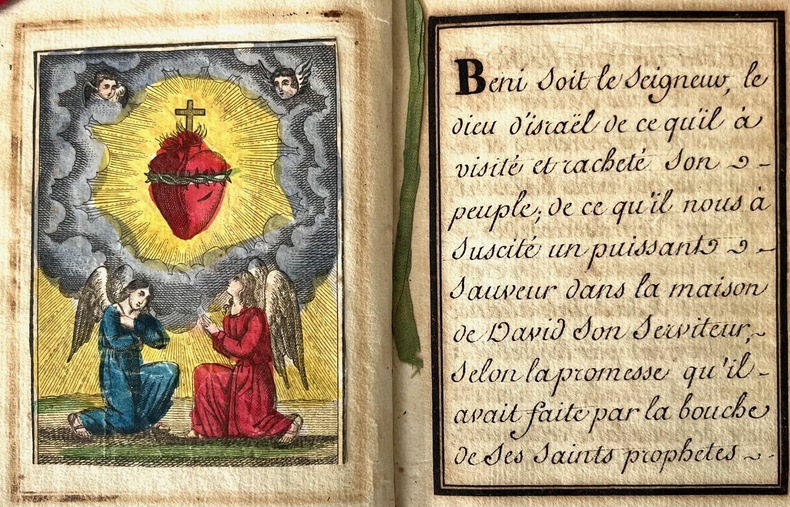 Beni soit le Seigneur, le
dieu d'israël de ce qu'il à
visité et racheté son
peuple; de ce qu'il nous à
suscité un puissant
Sauveur dans la maison
de David son serviteur,
selon la promesse qu'il
avait faite par la bouche
de ses saints prophetes